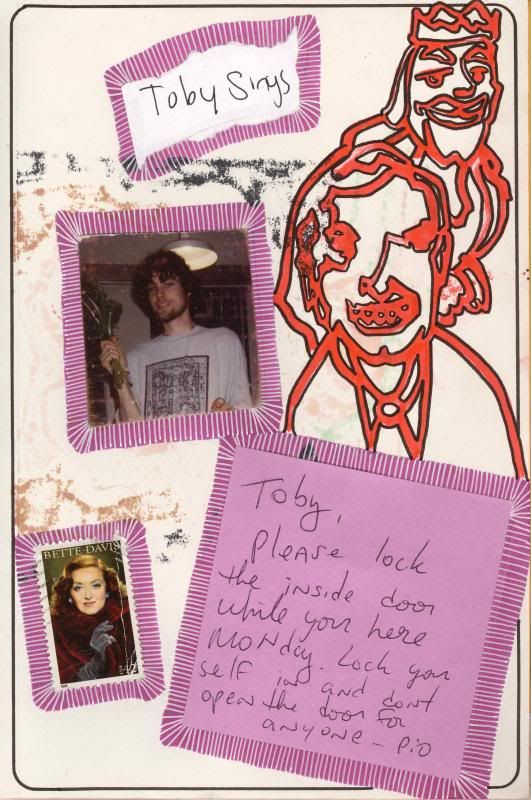 Toby Sings
BETTE DAVIS
Toby,
Please lock
the inside door
while your here
MONday. Lock your
self in and dont
open the door for
anyone - Pio